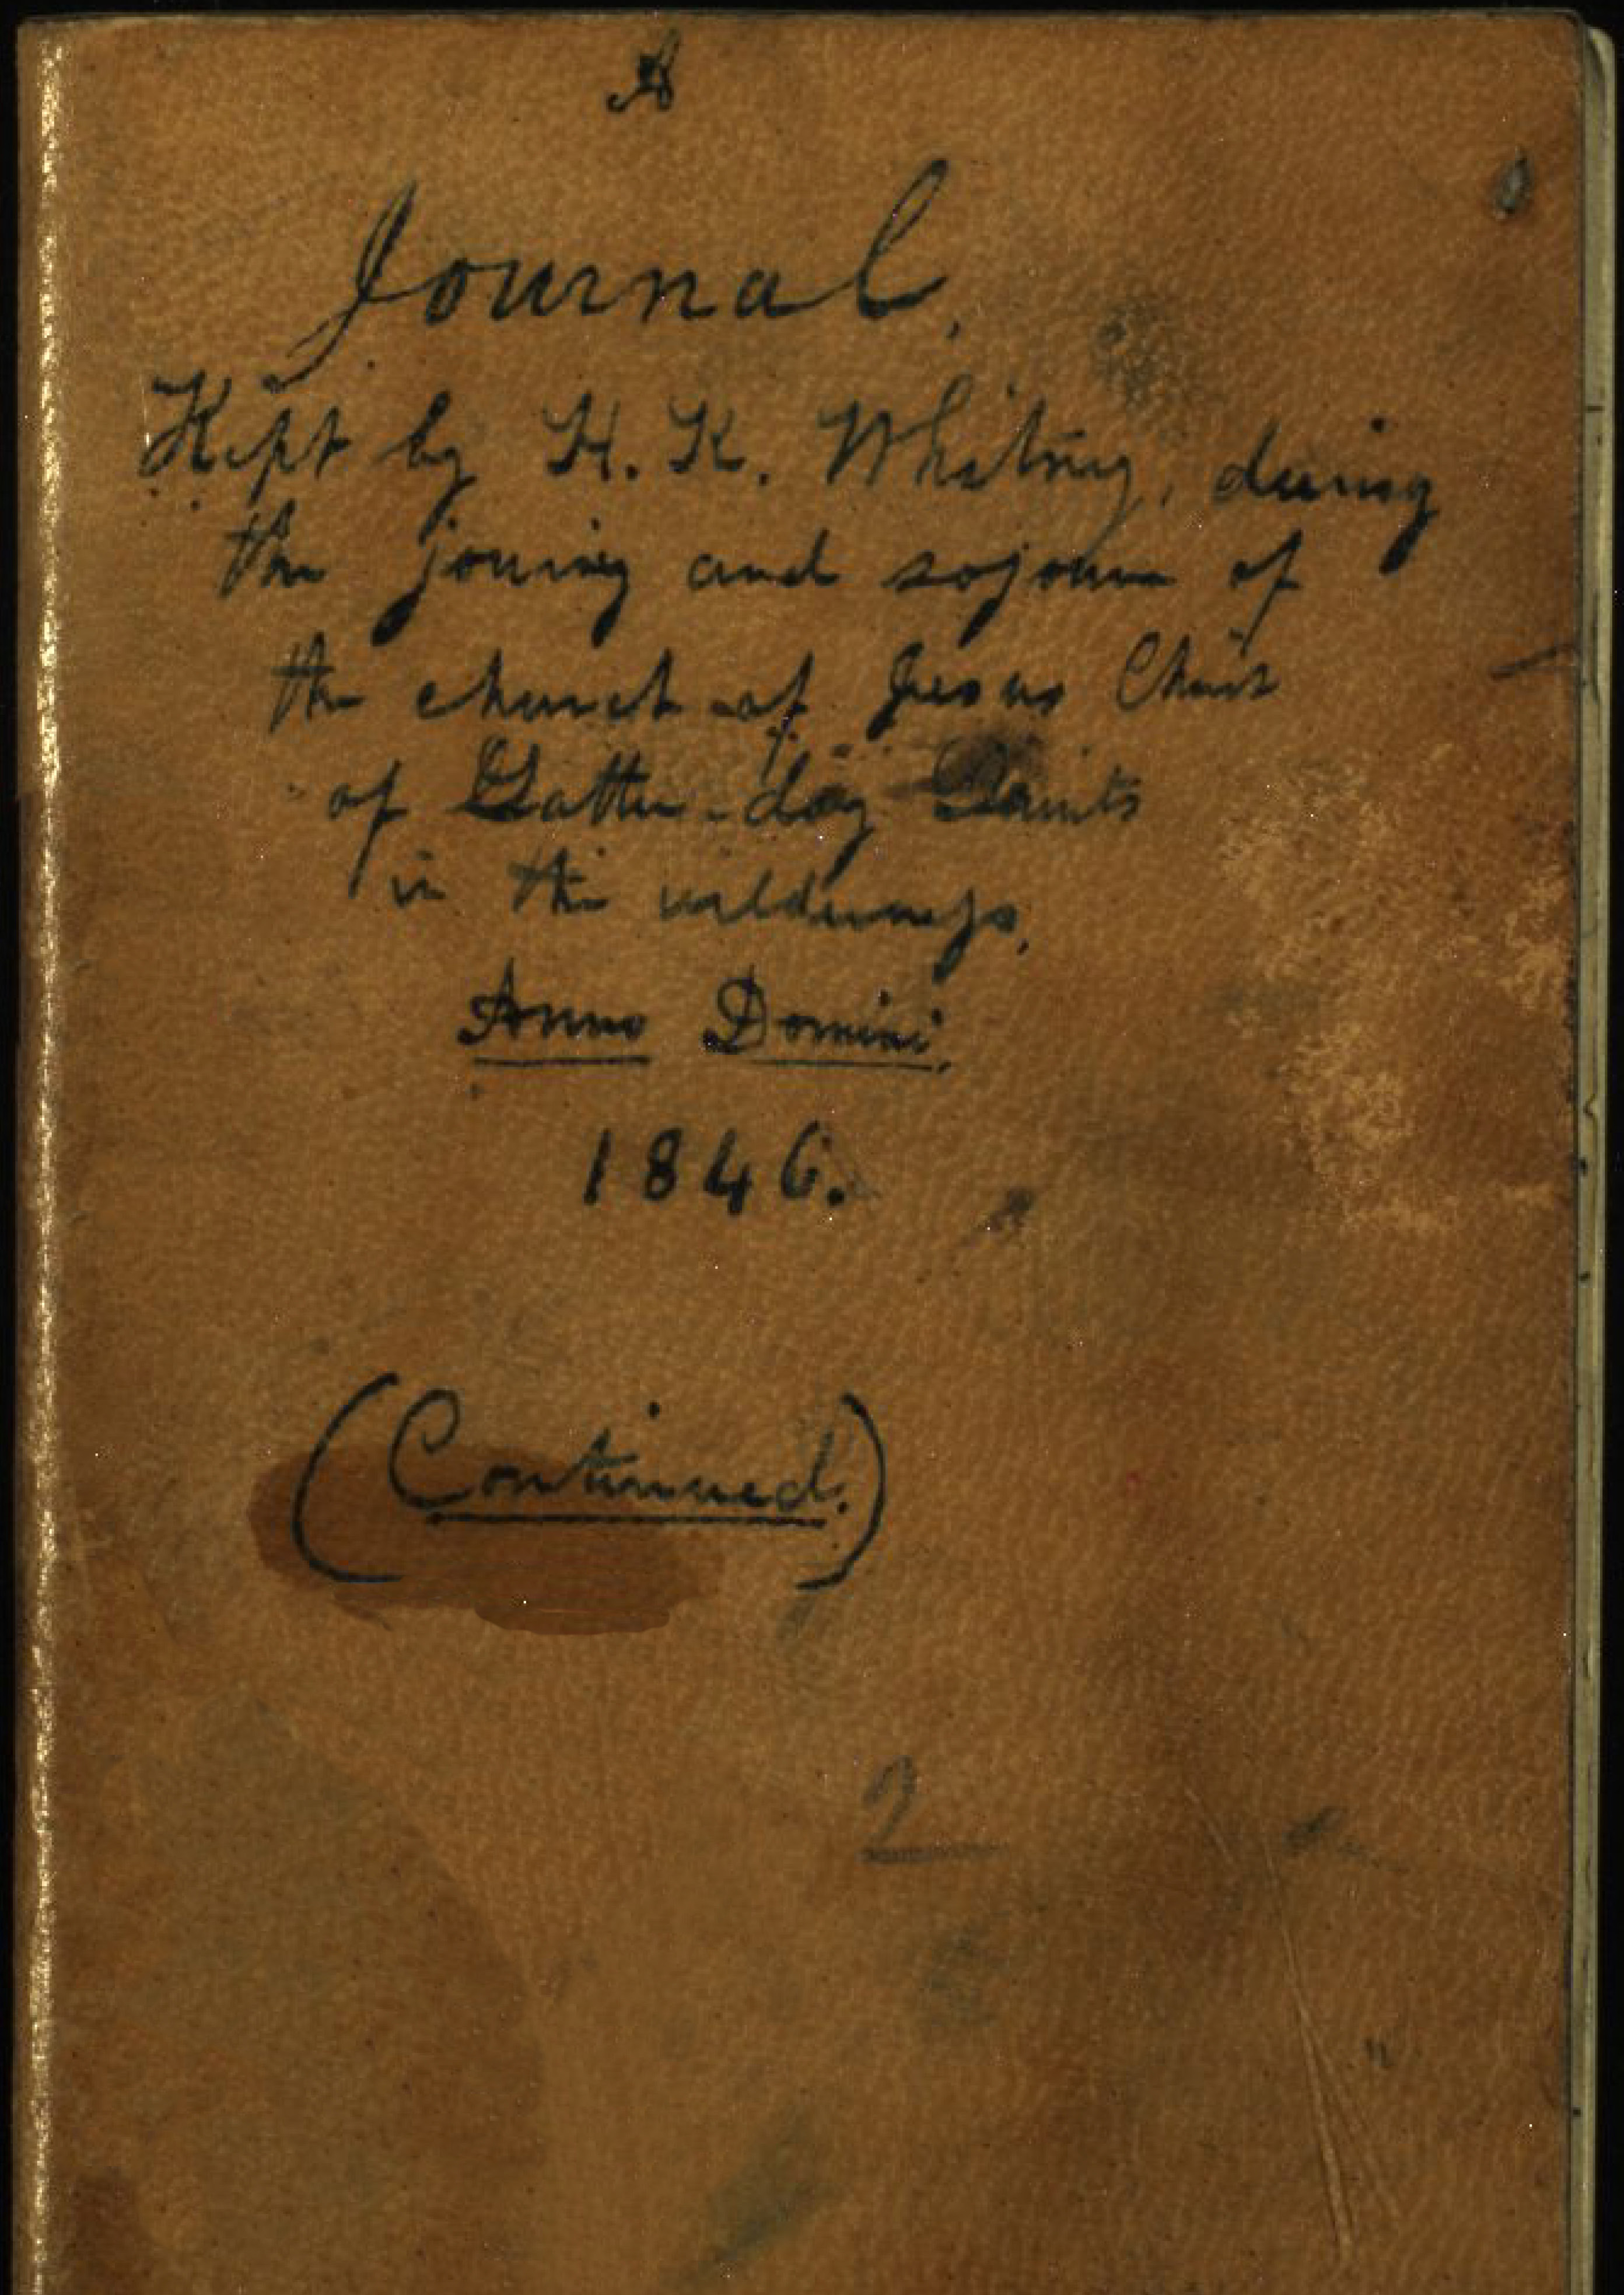 A
Journal,
Kept by H. K. Whitney, during
the journey and sojourn of
the church of Jesus Christ
of Latter-day Saints
in the wilderness,
Anno Domini,
1846.
(Continued.)
2